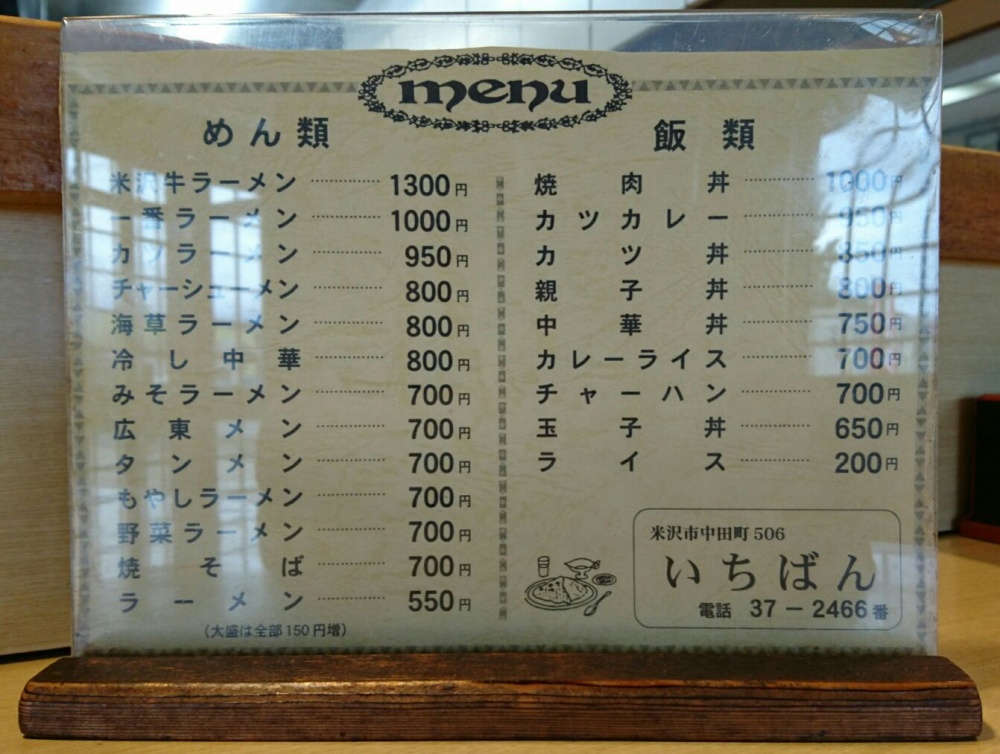 menu
めん類
米沢牛ラーメン 1300円
一番ラーメン 1000円
カツラーメン 950円
チャーシューメン 800円
海草ラーメン 800円
冷し中華 800円
みそラーメン 700円
広東メン 700円
タンメン 700円
もやしラーメン 700円
野菜ラーメン 700円
焼そば 700円
ラーメン 550円
(大盛は全部150円増)
飯類
焼肉丼 1000円
カツカレー 950円
カツ丼 850円
親子丼 800円
中華丼 750円
カレーライス 700円
チャーハン 700円
玉子丼 650円
ライス 200円
米沢市中田町506
いちばん
電話 37-2466番